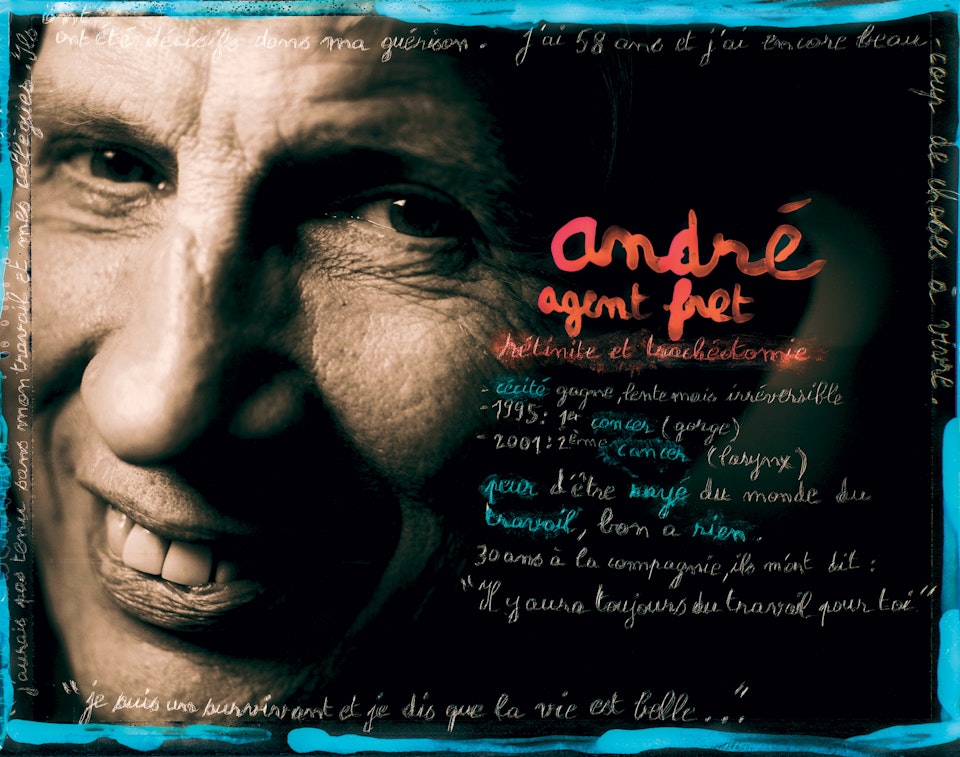 andré
agent fret
rétinite et trachéotomie
- cécité gagne, lente mais irréversible
- 1995: 1er cancer (gorge)
- 2001: 2ème cancer (larynx)
peur d'être rayé du monde du
travail, bon a rien.
30 ans à la compagnie, ils m'ont dit :
"Il y aura toujours du travail pour toi"
"je suis un survivant et je dis que la vie est belle..."
j'aurais pas tenu sans mon travail et mes collègues. Ils
ont été décisifs dans ma guérison. j'ai 58 ans et j'ai encore beau
-coup de choses a vivre.